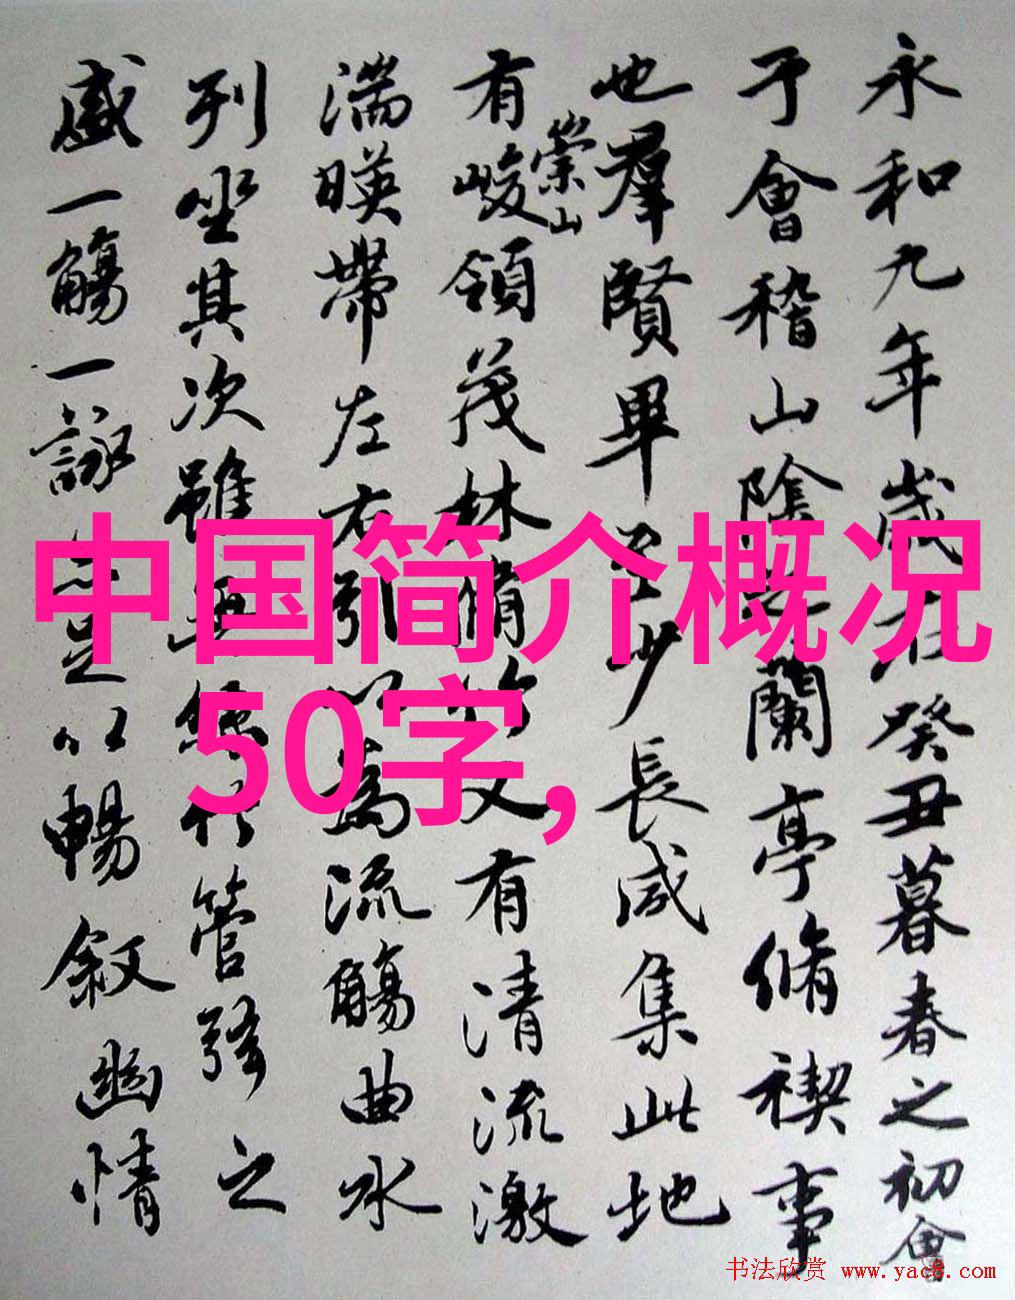 永和九年歲在癸丑暮春之初會
于會稽山陰之蘭亭脩禊事
也羣賢畢至少長咸集此地
有崇山峻領茂林脩竹又有清流激
湍暎帶左右引以為流觴曲水
列坐其次雖無絲竹管弦之
盛一觴一詠亦足以暢敘幽情
中国简介概况
50字,
书法欣赏 www.yac8.com